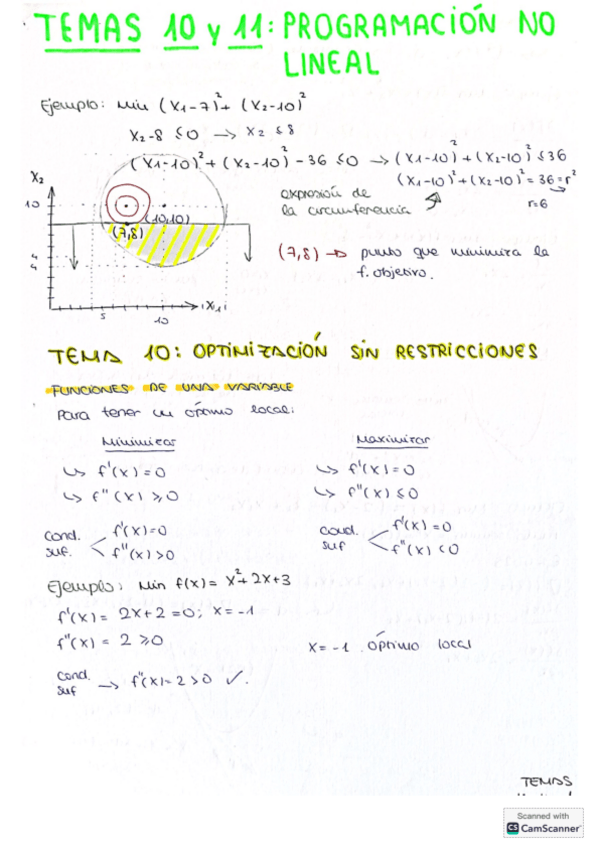 TEMAS 10 y 11: PROGRAMACIÓN NO
LINEAL
Ejemplo: Min (X1-7)²+ (X2-10)²
X2-8 ≤0 → X2 ≤8
(X1-10)²+(X2-10)²-36 ≤0 → (X1-10)²+(X2-10)² ≤36
(X1-10)²+(X2-10)²=36=r²
r=6
expresión de
la circunferencia
X2
10
(10,10)
(7,8)
4
4
5
10
X1
(7,8) → punto que minimiza la
f. objetivo.
TEMA 10: OPTIMIZACIÓN SIN RESTRICCIONES
FUNCIONES DE UNA VARIABLE
Para tener un óptimo local:
Minimizar
Maximizar
↳ f'(x)=0
↳ f'(x)=0
↳ f''(x) ≥0
↳ f''(x) ≤0
Cond. suf. f'(x)=0
f''(x)>0
Cond. suf f'(x)=0
f''(x)<0
Ejemplo: Min f(x)= x²+2x+3
f'(x)= 2x+2=0; x=-1
f''(x)= 2 ≥0
x=-1 óptimo local
Cond. suf → f''(x)=2>0 ✓.
TEMAS
Scanned with
CS CamScanner